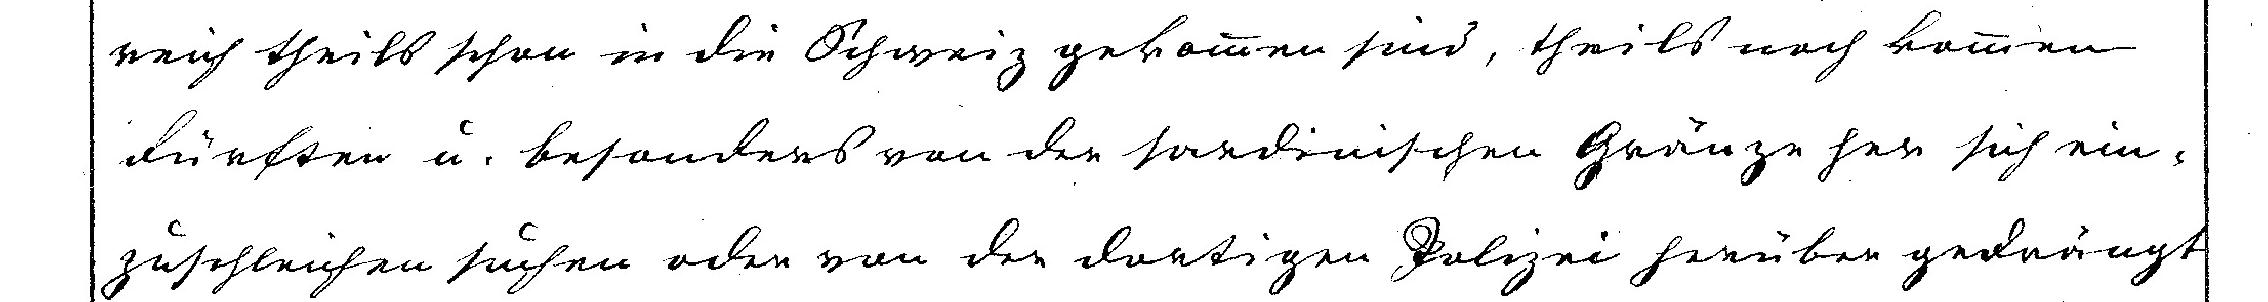 reich theils schon in die Schweiz gekom̅en sind, theils noch kom̅en
dürften u. besonders von der sardinischen Gränze her sich ein-
zuschleichen suchen oder von der dortigen Polizei herüber gedrängt